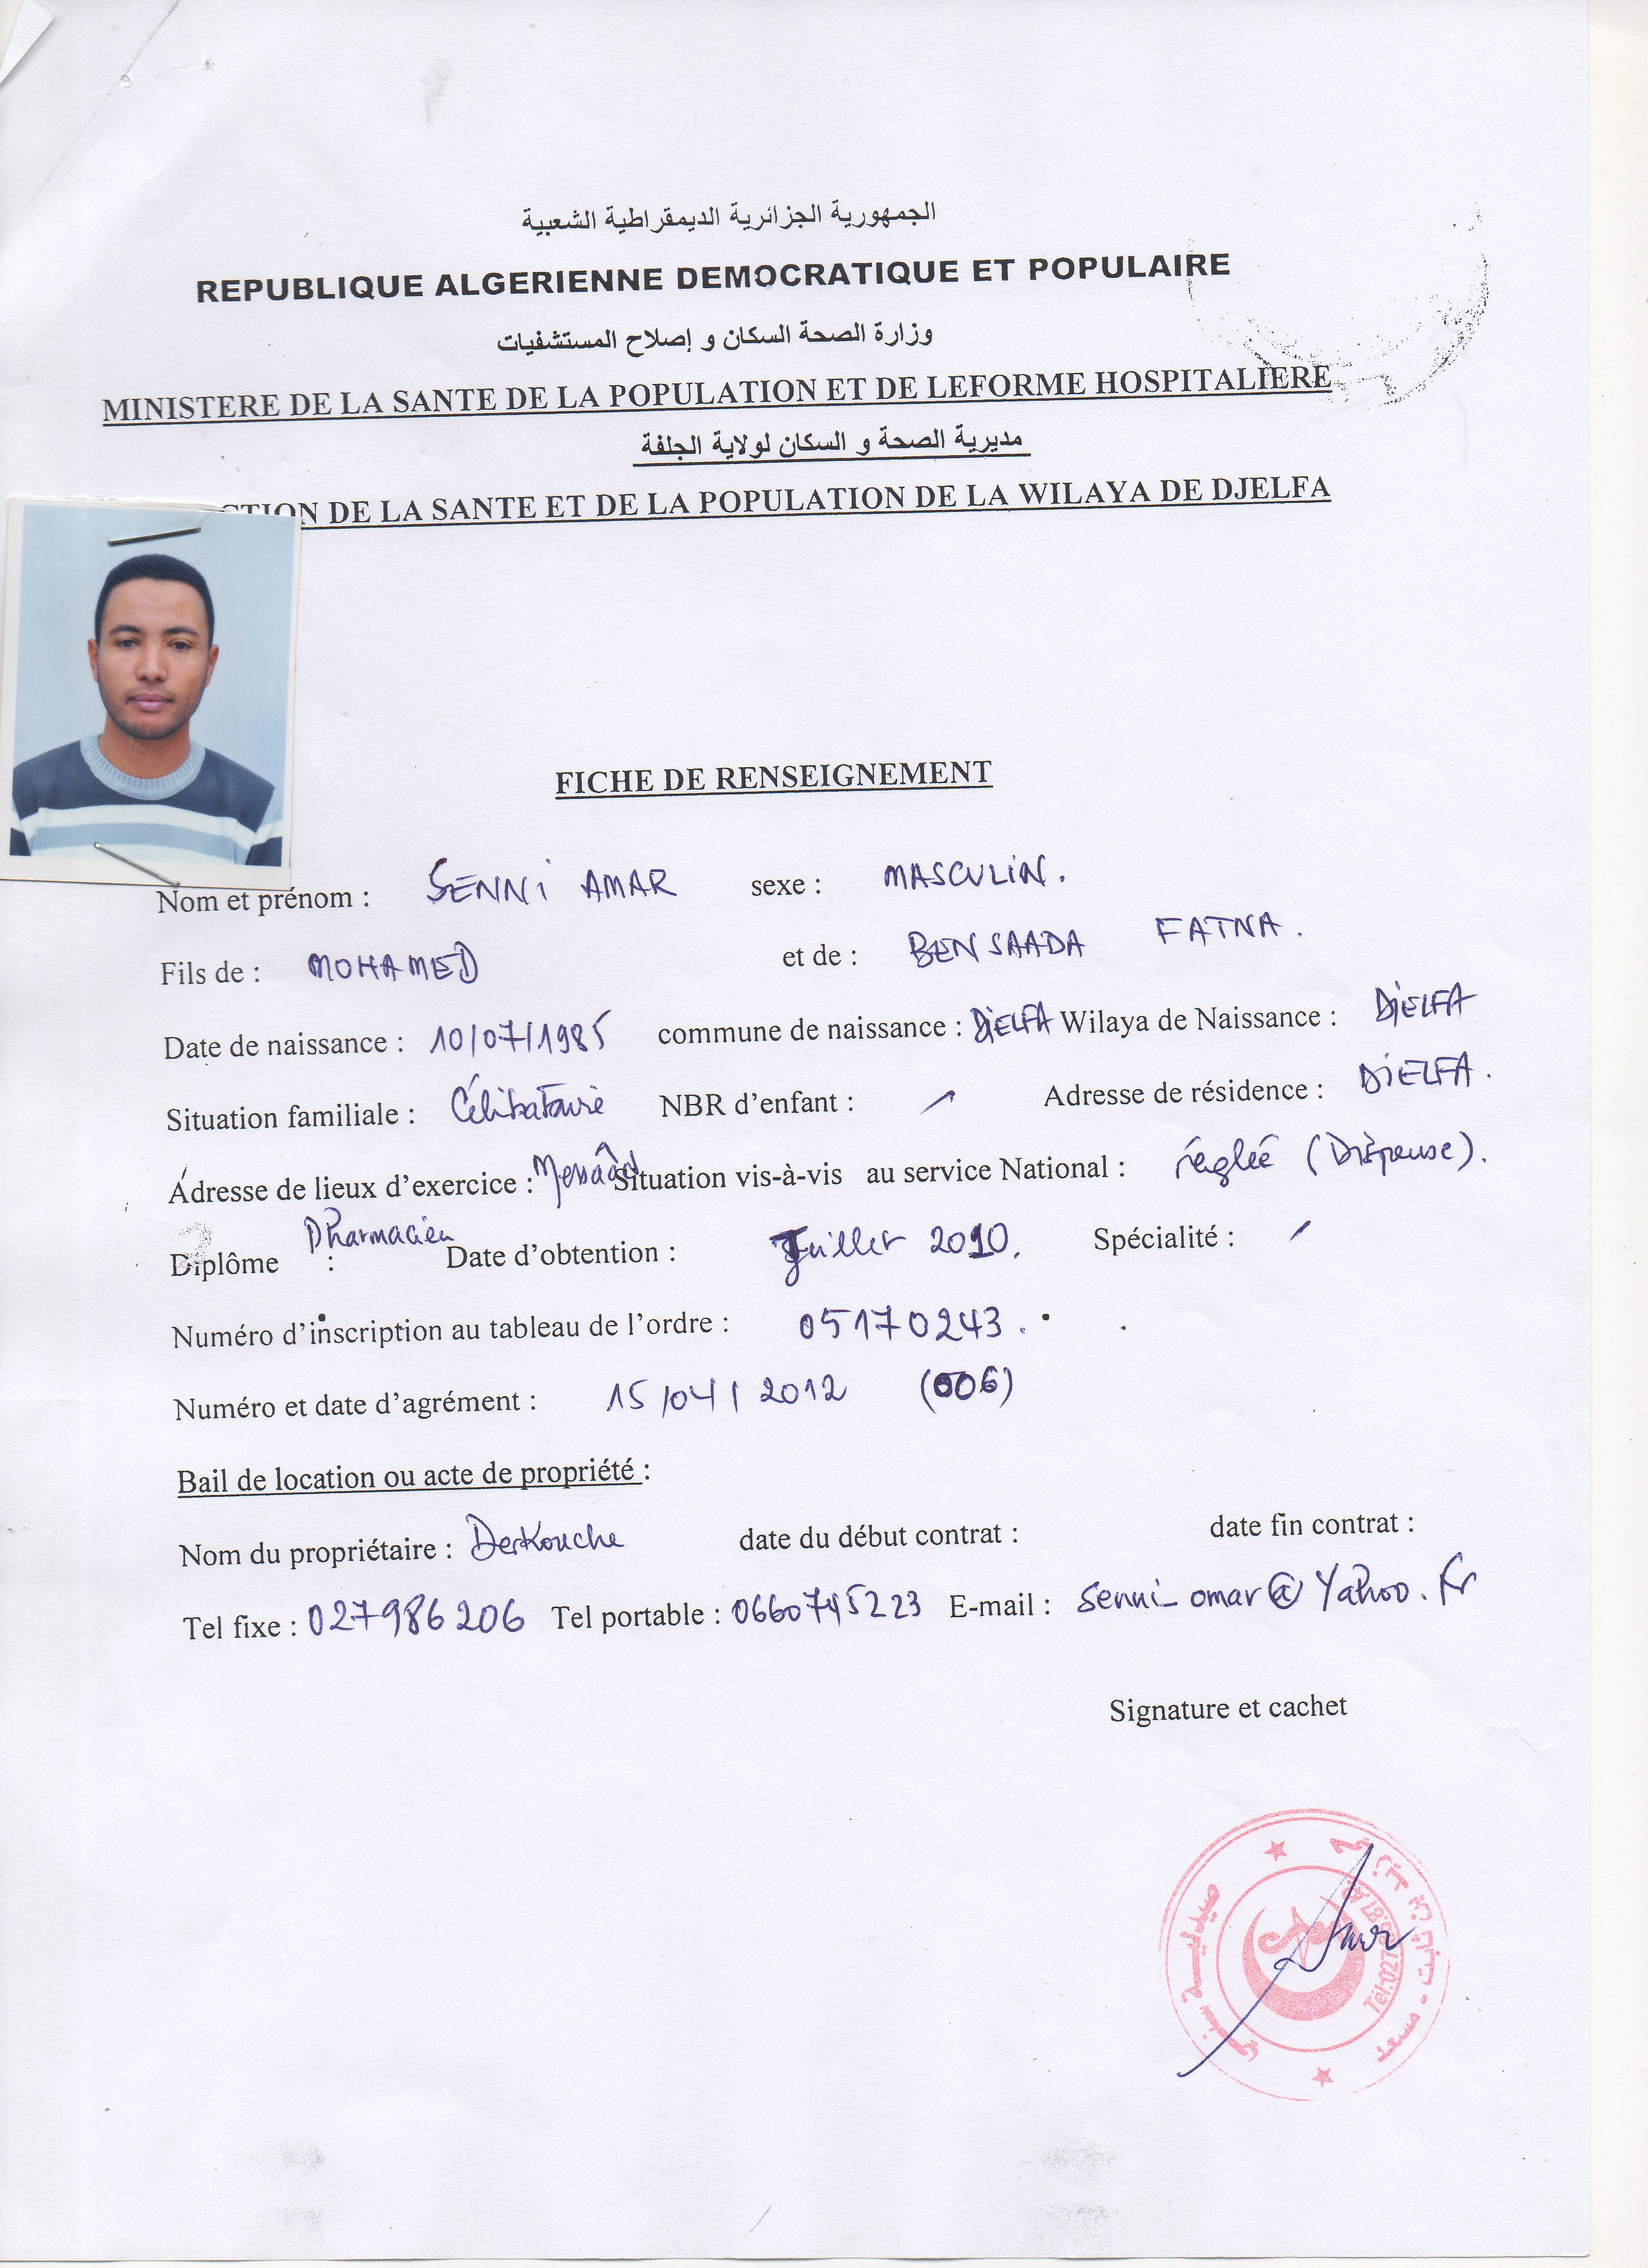 الجمهورية الجزائرية الديمقراطية الشعبية
REPUBLIQUE ALGERIENNE DEMOCRATIQUE ET POPULAIRE
وزارة الصحة السكان و إصلاح المستشفيات
MINISTERE DE LA SANTE DE LA POPULATION ET DE LEFORME HOSPITALIERE
مديرية الصحة و السكان لولاية الجلفة
CTION DE LA SANTE ET DE LA POPULATION DE LA WILAYA DE DJELFA
FICHE DE RENSEIGNEMENT
Nom et prénom : SENNI AMAR sexe : MASCULIN.
Fils de : MOHAMED et de : BENSAADA FATNA.
Date de naissance : 10/07/1985 commune de naissance : DJELFA Wilaya de Naissance : DJELFA
Situation familiale : Célibataire NBR d'enfant : / Adresse de résidence : DJELFA.
Adresse de lieux d'exercice : Messaâd Situation vis-à-vis au service National : réglée (Dispense).
Diplôme : Pharmacien Date d'obtention : Juillet 2010. Spécialité : /
Numéro d'inscription au tableau de l'ordre : 05170243.
Numéro et date d'agrément : 15/04/2012 (006)
Bail de location ou acte de propriété :
Nom du propriétaire : Derkouche date du début contrat : date fin contrat :
Tel fixe : 027986206 Tel portable : 0660745223 E-mail : senni_omar@Yahoo.fr
Signature et cachet
صيدليـــة سنـي
بن ثابت - مسعد
Tél:027